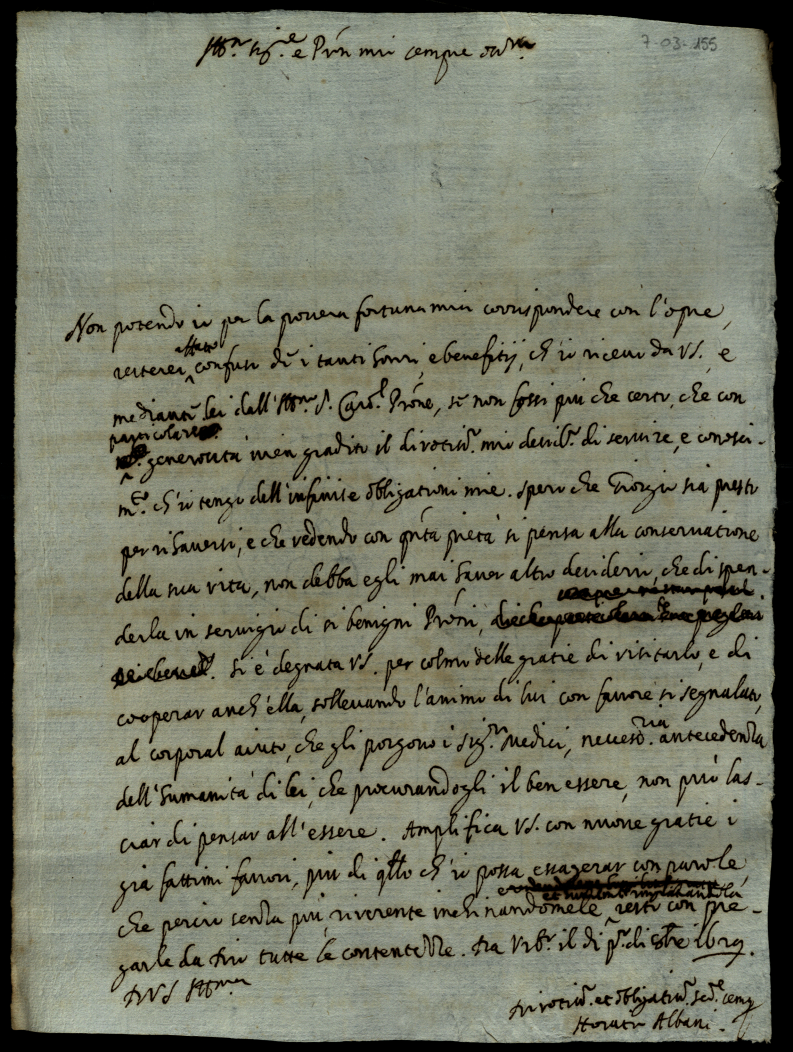 7-03-155
Ill.mo Sig.re e P̃rõn mio sempre oss.mo
Non potendo io per la povera fortuna mia corrispondere con l'opre,
resterei affatto confuso di i tanti honori, e benefitij, ch'io ricevo da VS. e
mediante lei dall'Ill.mo S. Card.l P̃rõne, se non fossi più che certo, che con
particolare
generosità vien gradito il divotiss.o mio desid.o di servire, e conosci-
m.to ch'io tengo dell'infinite obligationi mie. Spero che Giorgio sia presto
per rihaversi, e che vedendo con q̃nta pietà si pensa alla conservatione
della sua vita, non debba egli mai haver altro desiderio, che di spen-
derla in servigio di sì benigni P̃rõni,
Si è degnata VS. per colmo delle gratie di visitarlo, e di
cooperar anch'ella, sollevando l'animo di lui con favore sì segnalato,
al corporal aiuto, che gli porgono i Sig.ri Medici, necess.ria antecedenza
dell'humanità di lei, che procurandogli il ben essere, non può las-
ciar di pensar all'essere. Amplifica VS. con nuove gratie i
già fattimi favori, più di q̃llo ch'io possa essagerar con parole,
che perciò senza più, riverente inchinandomele resto con pre-
garle da Dio tutte le contentezze. Da Urb.o il dì p.o di 8bre 1619.
Di VS Ill.ma
Divotiss.o et obligatiss.o se.re semp.
Horatio Albani.